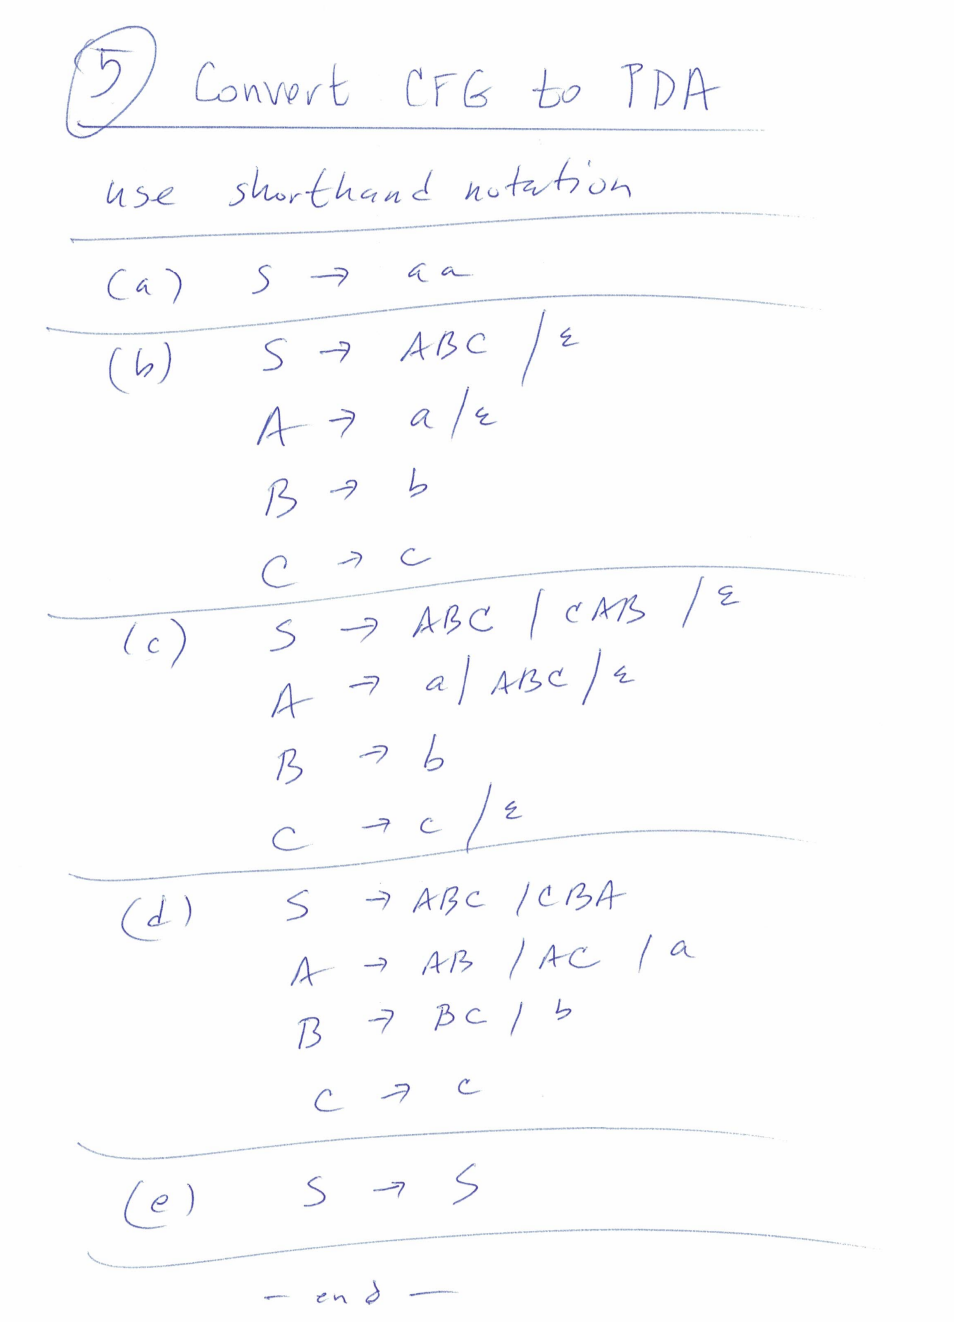 5 Convert CFG to PDA
use shorthand notation
(a) S → aa
(b) S → ABC / ε
A → a / ε
B → b
C → c
(c) S → ABC | CAB / ε
A → a | ABC / ε
B → b
C → c / ε
(d) S → ABC / CBA
A → AB / AC / a
B → BC / b
C → c
(e) S → S
- end -